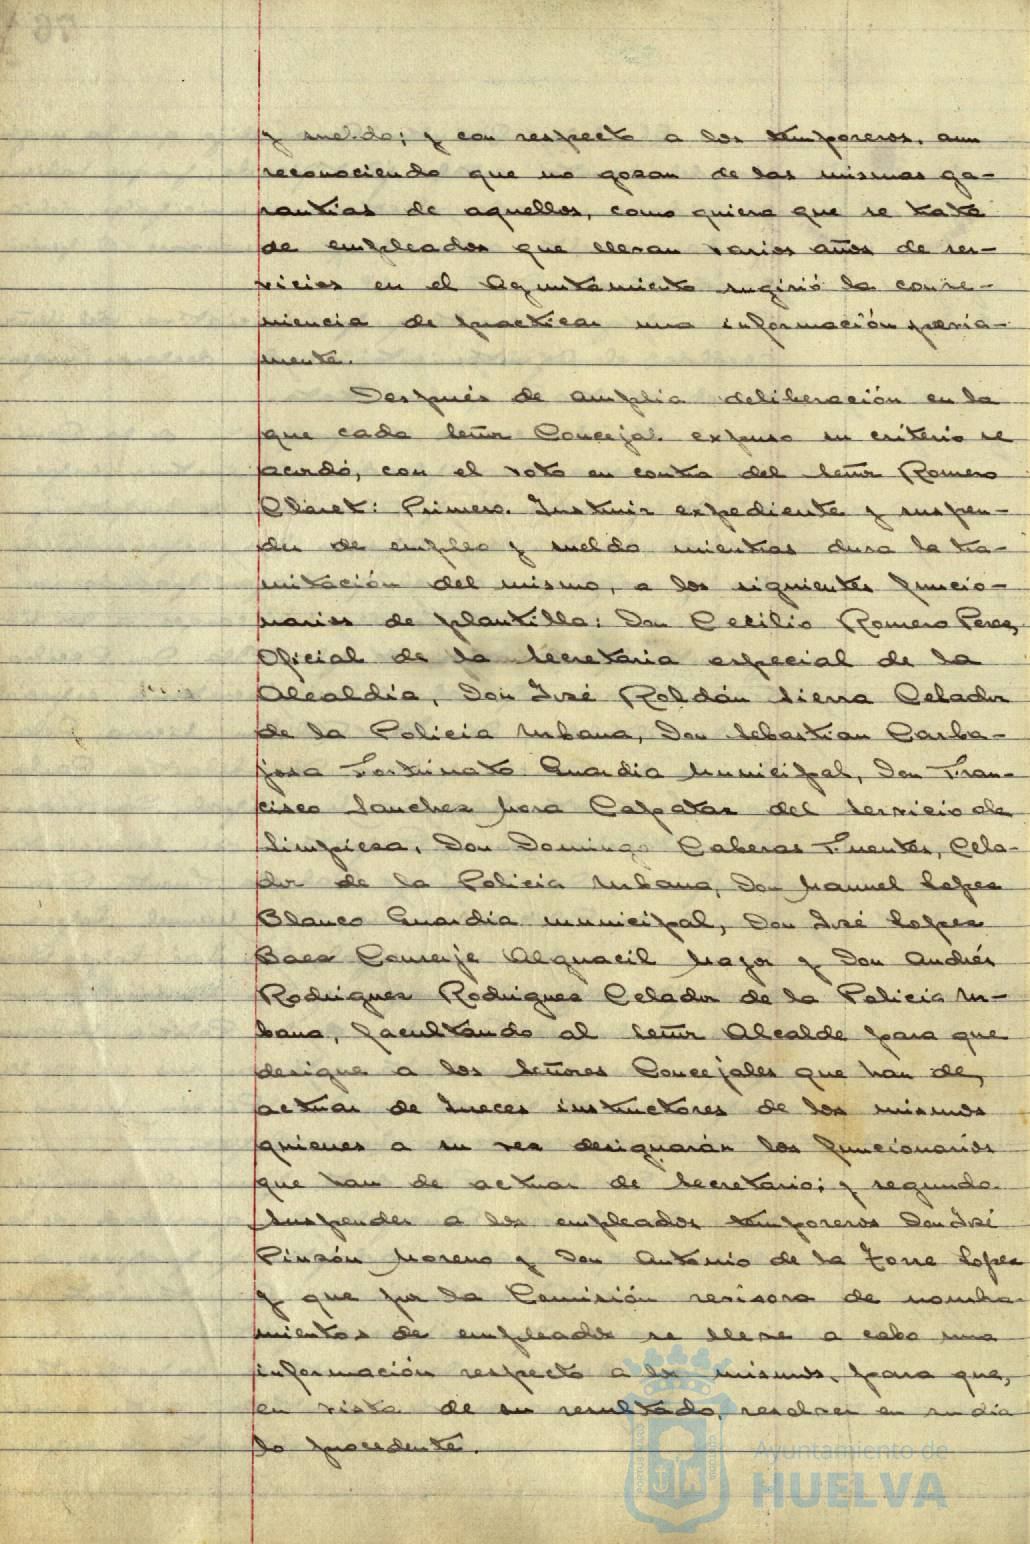 y sueldo; y con respecto a los temporeros, aun
reconociendo que no gozan de las mismas ga-
rantias de aquellos, como quiera que se trata
de empleados que llevan varios años de ser-
vicios en el Ayuntamiento sugirió la conve-
niencia de practicar una información previa-
mente.
Después de amplia deliberación en la
que cada Señor Concejal expuso su criterio se
acordó, con el voto en contra del Señor Romero
Claret: Primero. Instruir expediente y suspen-
der de empleo y sueldo mientras dura la tra-
mitación del mismo, a los siguientes funcio-
narios de plantilla: Don Cecilio Romero Perez,
Oficial de la Secretaria especial de la
Alcaldía, Don José Roldán Sierra Celador
de la Policia Urbana, Don Sebastian Carba-
josa Fortunato Guardia Municipal, Don Fran-
cisco Sanchez Mora Capataz del Servicio de
Limpieza, Don Domingo Caberas Fuentes, Cela-
dor de la Policia Urbana, Don Manuel Lopez
Blanco Guardia municipal, Don José Lopez
Baez Conserje Alguacil Mayor y Don Andrés
Rodriguez Rodriguez Celador de la Policia Ur-
bana, facultando al Señor Alcalde para que
designe a los Señores Concejales que han de,
actuar de Jueces instructores de los mismos
quienes a su vez designarán los funcionarios
que han de actuar de Secretario; y segundo
Suspender a los empleados temporeros Don José
Pinzón Moreno y Don Antonio de la Torre Lopez
y que por la Comisión revisora de nombra-
mientos de empleados se lleve a cabo una
información respecto a los mismos, para que,
en vista de su resultado, resolver en su dia
lo procedente.
Ayuntamiento de
HUELVA